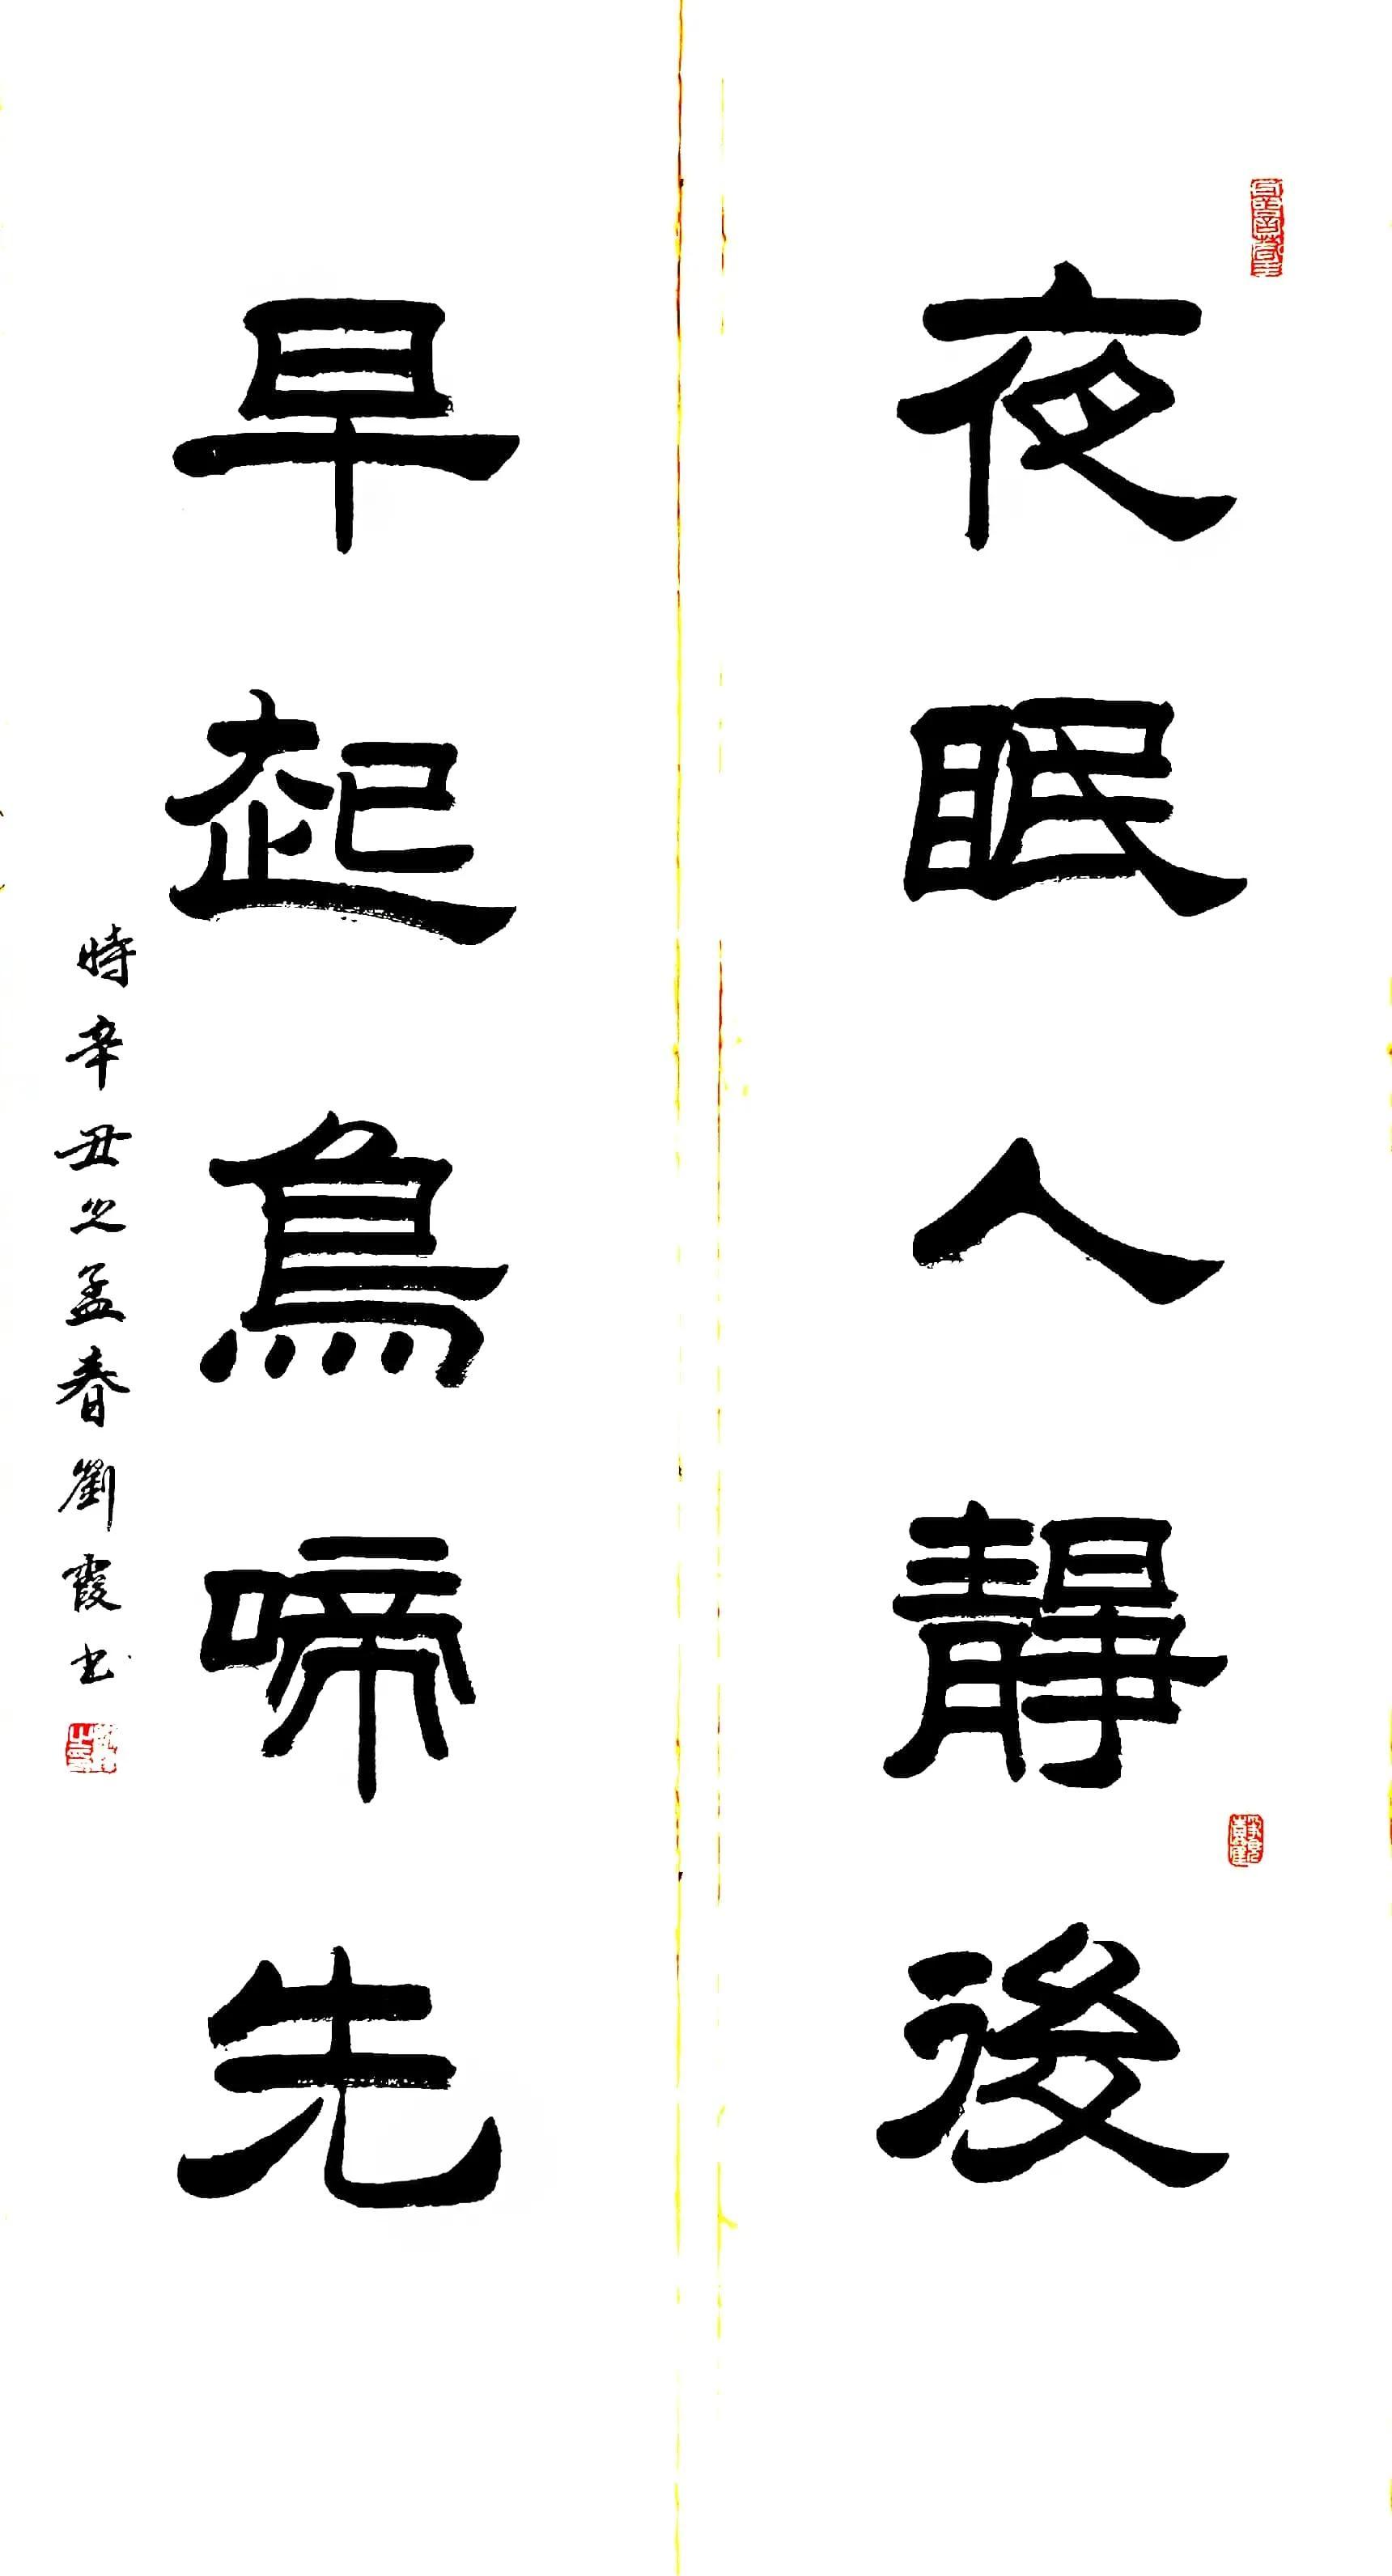 夜眠人靜後
早起鳥啼先
時辛丑之孟春劉霞书